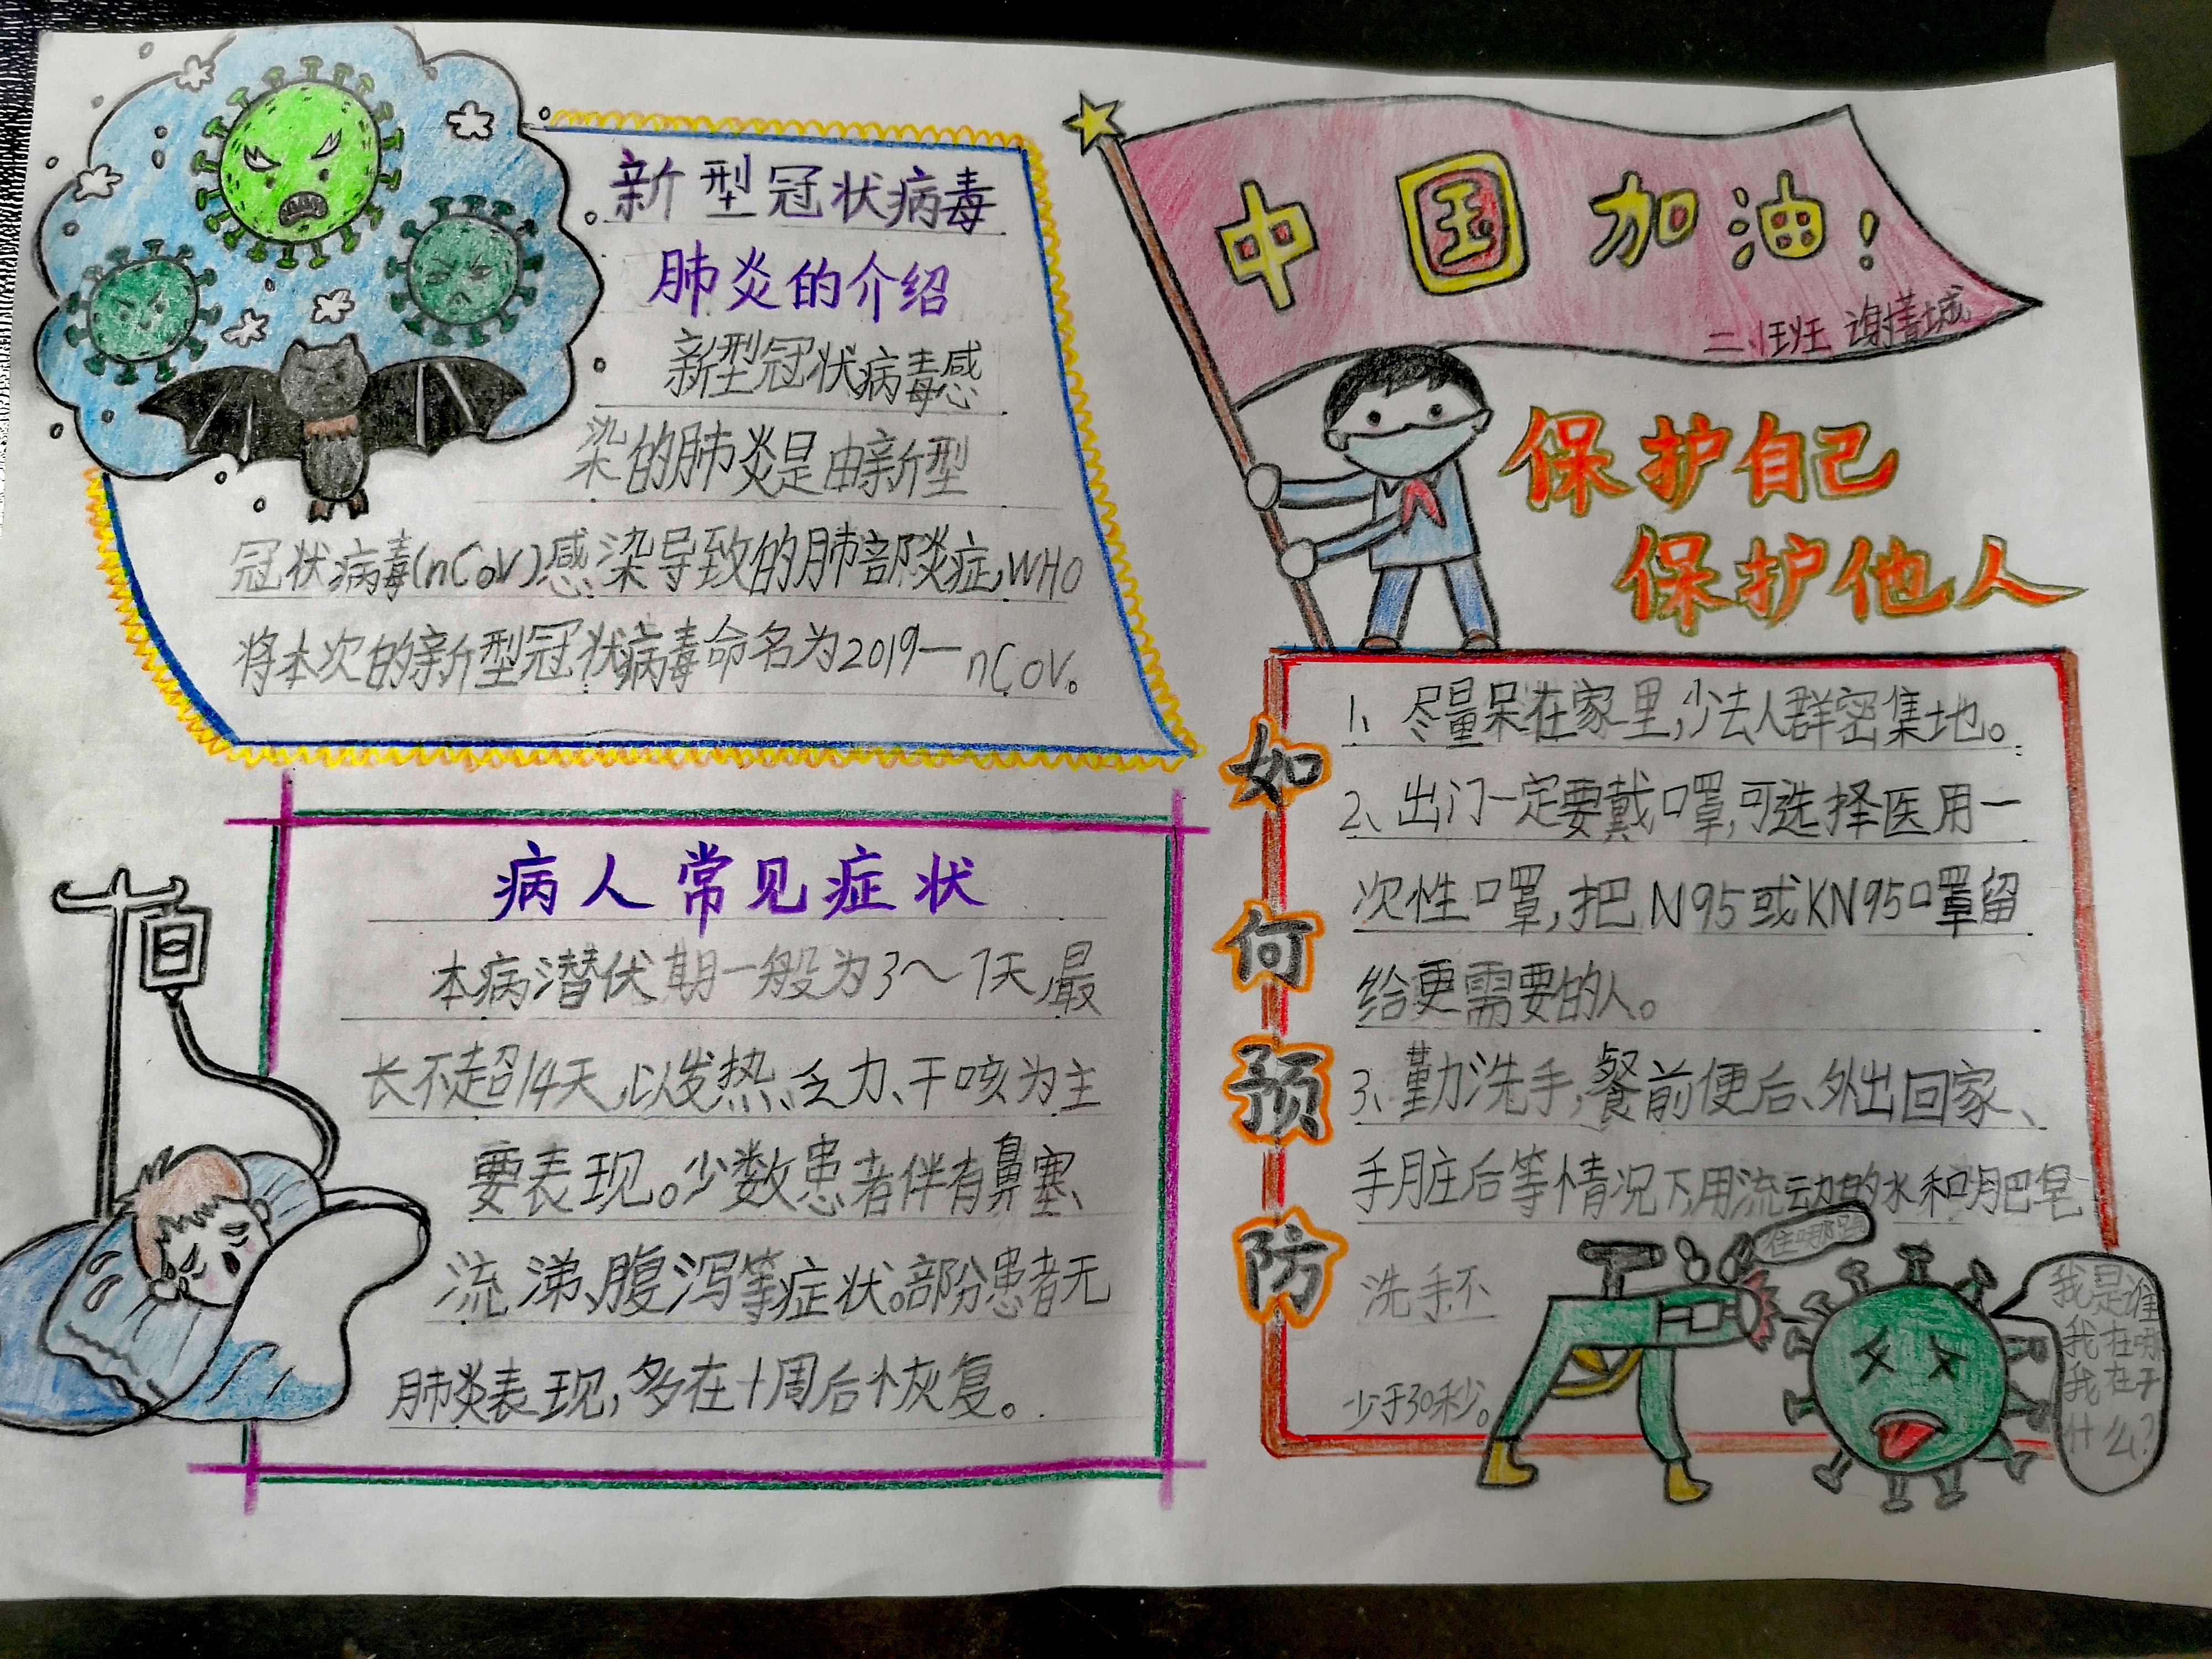 新型冠状病毒
肺炎的介绍
新型冠状病毒感
染的肺炎是由新型
冠状病毒(nCoV)感染导致的肺部炎症,WHO
将本次的新型冠状病毒命名为2019—nCoV。
病人常见症状
本病潜伏期一般为3～7天,最
长不超14天,以发热、乏力、干咳为主
要表现。少数患者伴有鼻塞、
流涕、腹泻等症状。部分患者无
肺炎表现,多在十周后恢复。
中国加油!
保护自己
保护他人
如何预防
1、尽量呆在家里,少去人群密集地。
2、出门一定要戴口罩,可选择医用一
次性口罩,把N95或KN95口罩留
给更需要的人。
3、勤洗手,餐前便后、外出回家、
手脏后等情况下,用流动的水和肥皂
洗手不
少于30秒。
住哪跑
我是谁
我在哪
我在干
什么?